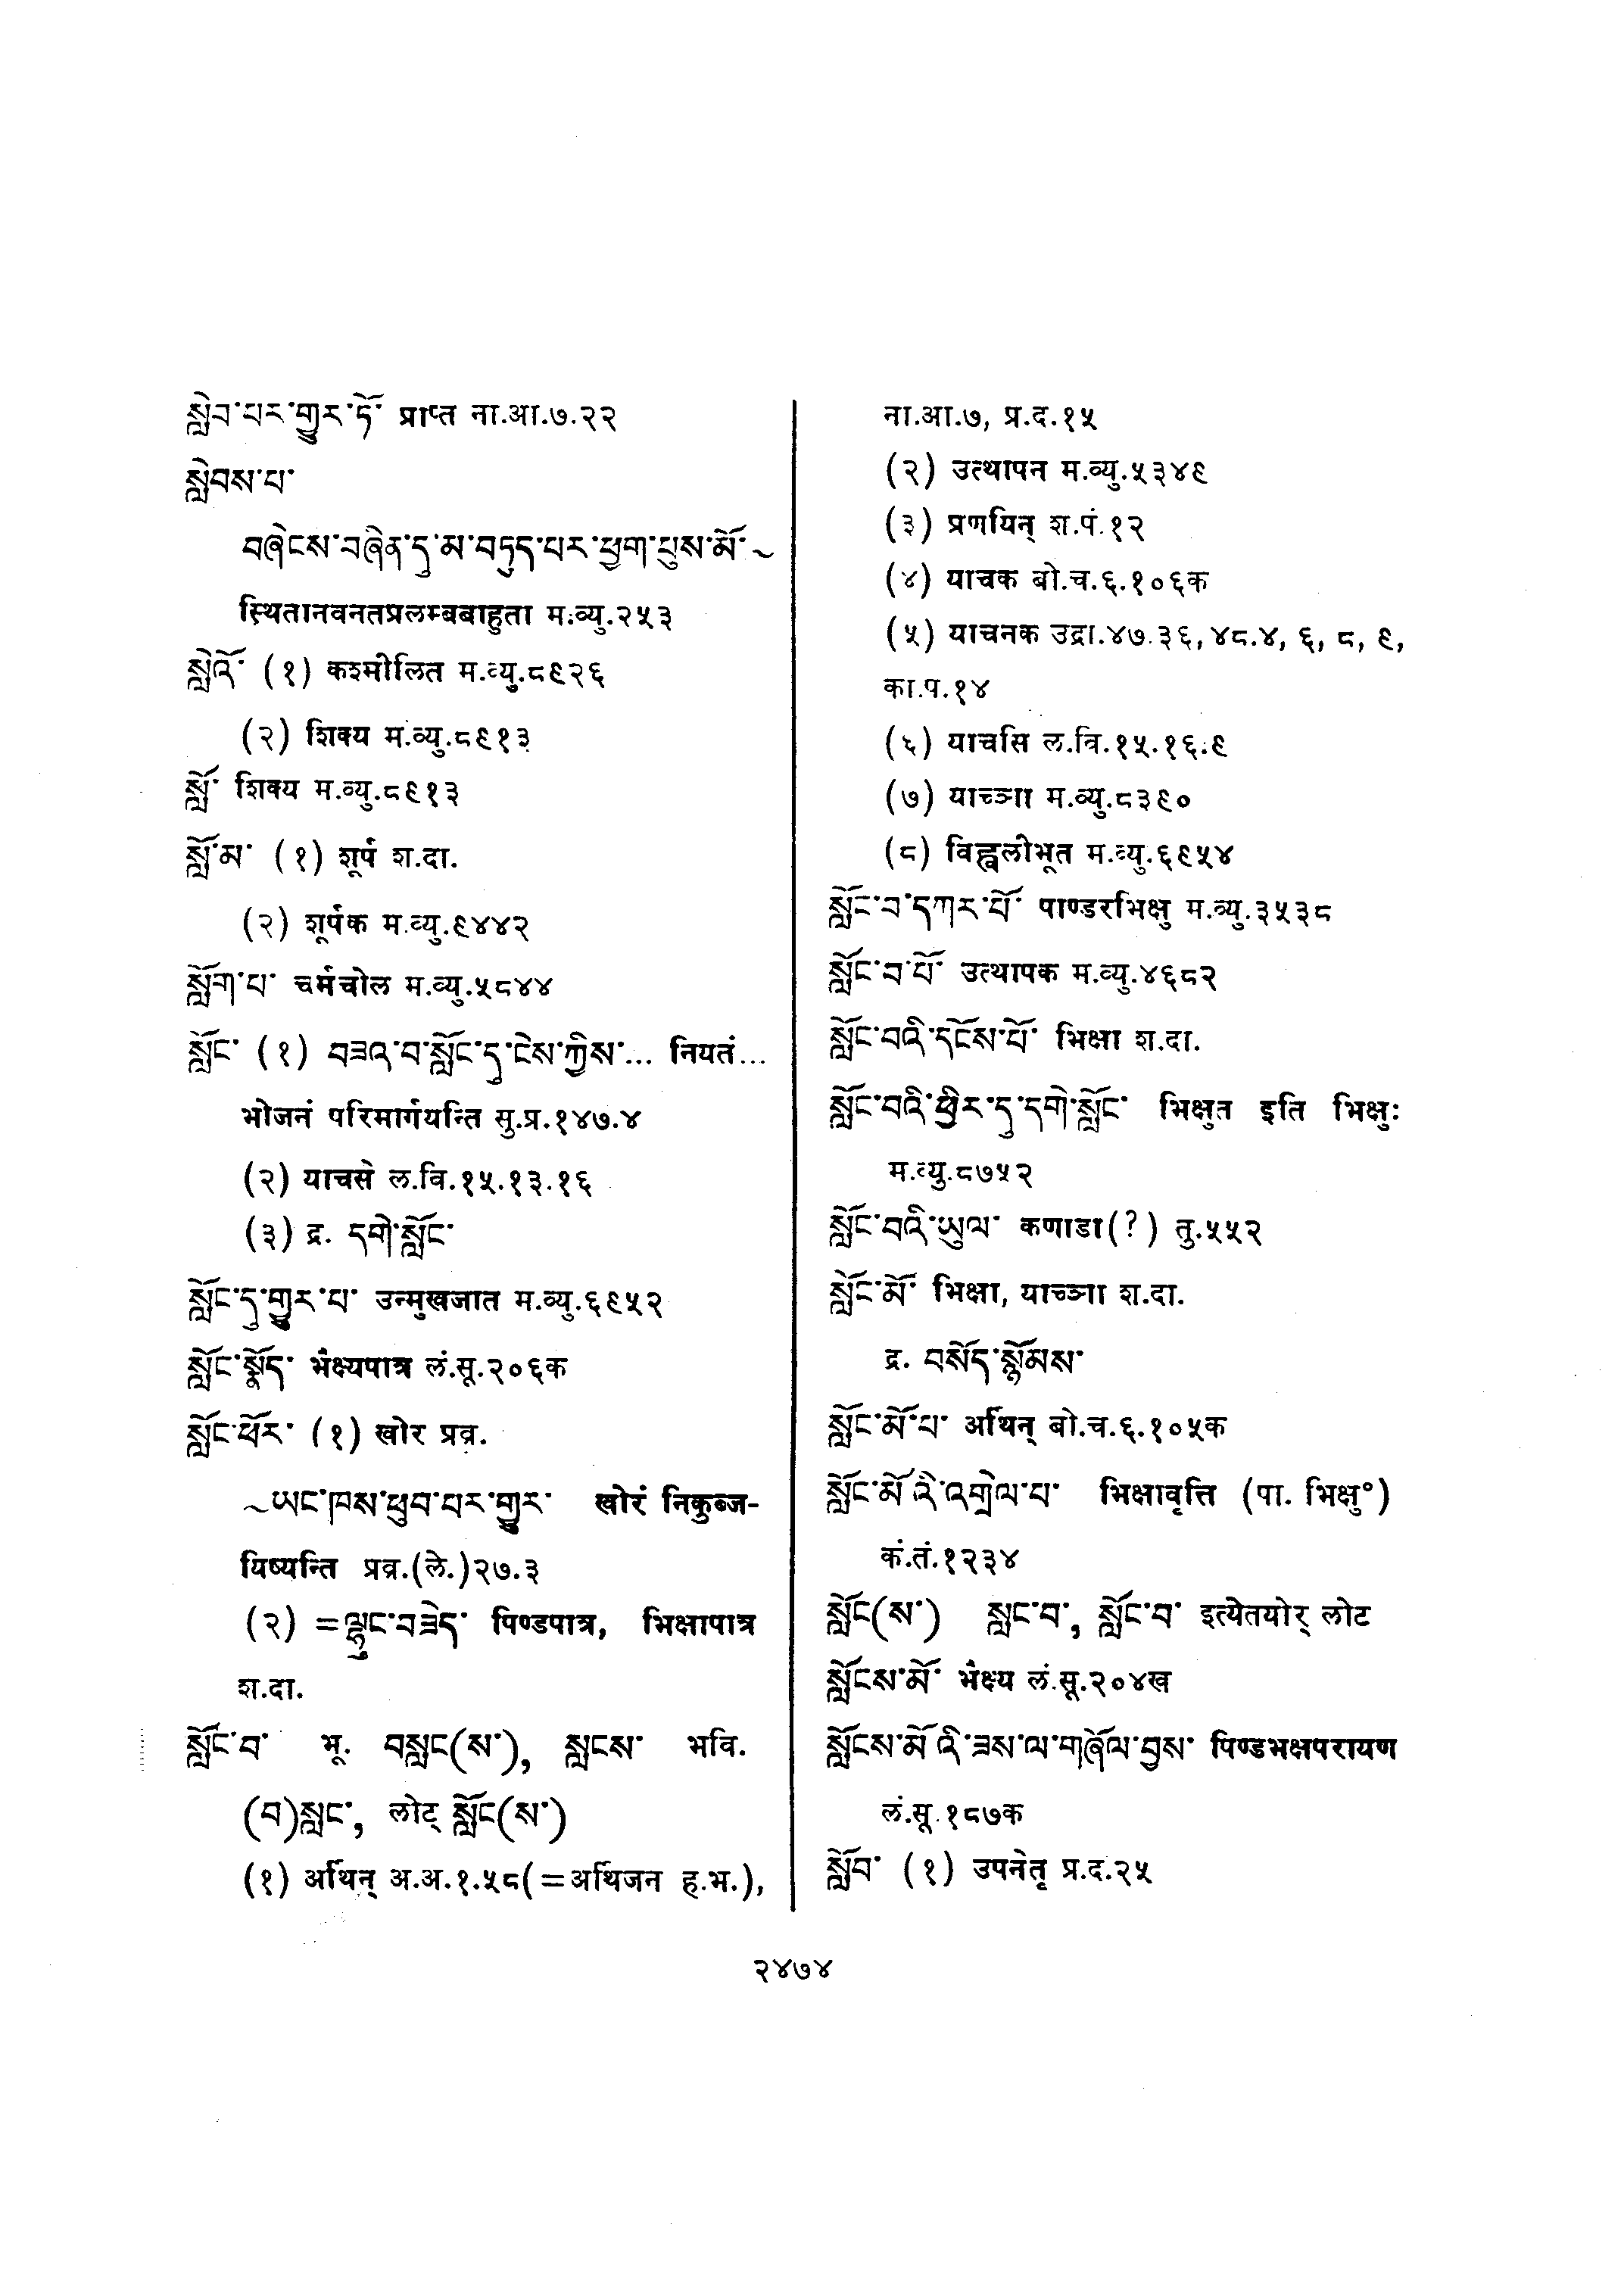 སླེབ་པར་གྱུར་ཏོ་ प्राप्त ना.आ.७.२२
སླེབས་པ་
བཞེངས་བཞིན་དུ་མ་བཏུད་པར་ཕྱག་པུས་མོ་~
स्थितानवनतप्रलम्बबाहुता म.व्यु.२५३
སླེའོ་ (१) कश्मीलित म.व्यु.८९२६
(२) शिक्य म.व्यु.८९१३
སློ་ शिक्य म.व्यु.८९१३
སློ་མ་ (१) शूर्प श.दा.
(२) शूर्पक म.व्यु.९४४२
སློག་པ་ चर्मचोल म.व्यु.५८४४
སློང་ (१) བཟའ་བ་སློང་དུ་ངེས་ཀྱིས་... नियतं...
भोजनं परिमार्गयन्ति सु.प्र.१४७.४
(२) याचसे ल.वि.१५.१३.१६
(३) द्र. དགེ་སློང་
སློང་དུ་གྱུར་པ་ उन्मुखजात म.व्यु.६९५२
སློང་སྣོད་ भैक्ष्यपात्र लं.सू.२०६क
སློང་ཕོར་ (१) खोर प्रव्र.
~ཡང་ཁས་ཕུབ་པར་གྱུར་ खोरं निकुब्ज-
यिष्यन्ति प्रव्र.(ले.)२७.३
(२) =ལྷུང་བཟེད་ पिण्डपात्र, भिक्षापात्र
श.दा.
སློང་བ་ भू. བསླང(ས་), སླངས་ भवि.
(བ)སླང་, लोट् སློང(ས་)
(१) अर्थिन् अ.अ.१.५८(=अर्थिजन ह.भ.),
ना.आ.७, प्र.द.१५
(२) उत्थापन म.व्यु.५३४९
(३) प्रणयिन् श.पं.१२
(४) याचक बो.च.६.१०६क
(५) याचनक उद्रा.४७.३६, ४८.४, ६, ८, ९,
का.प.१४
(६) याचसि ल.वि.१५.१६.९
(७) याच्ञा म.व्यु.८३९०
(८) विह्वलीभूत म.व्यु.६९५४
སློང་བ་དཀར་པོ་ पाण्डरभिक्षु म.व्यु.३५३८
སློང་བ་པོ་ उत्थापक म.व्यु.४६८२
སློང་བའི་དངོས་པོ་ भिक्षा श.दा.
སློང་བའི་ཕྱིར་དུ་དགེ་སློང་ भिक्षुत इति भिक्षुः
म.व्यु.८७५२
སློང་བའི་ཡུལ་ कणाडा(?) तु.५५२
སློང་མོ་ भिक्षा, याच्ञा श.दा.
द्र. བསོད་སྙོམས་
སློང་མོ་པ་ अर्थिन् बो.च.६.१०५क
སློང་མོའི་འགྲེལ་པ་ भिक्षावृत्ति (पा. भिक्षु॰)
कं.तं.१२३४
སློང(ས་) སླང་བ་, སློང་བ་ इत्येतयोर् लोट
སློངས་མོ་ भैक्ष्य लं.सू.२०४ख
སློངས་མོའི་ཟས་ལ་གཞོལ་བྱས་ पिण्डभक्षपरायण
लं.सू.१८७क
སློབ་ (१) उपनेतृ प्र.द.२५
२४७४